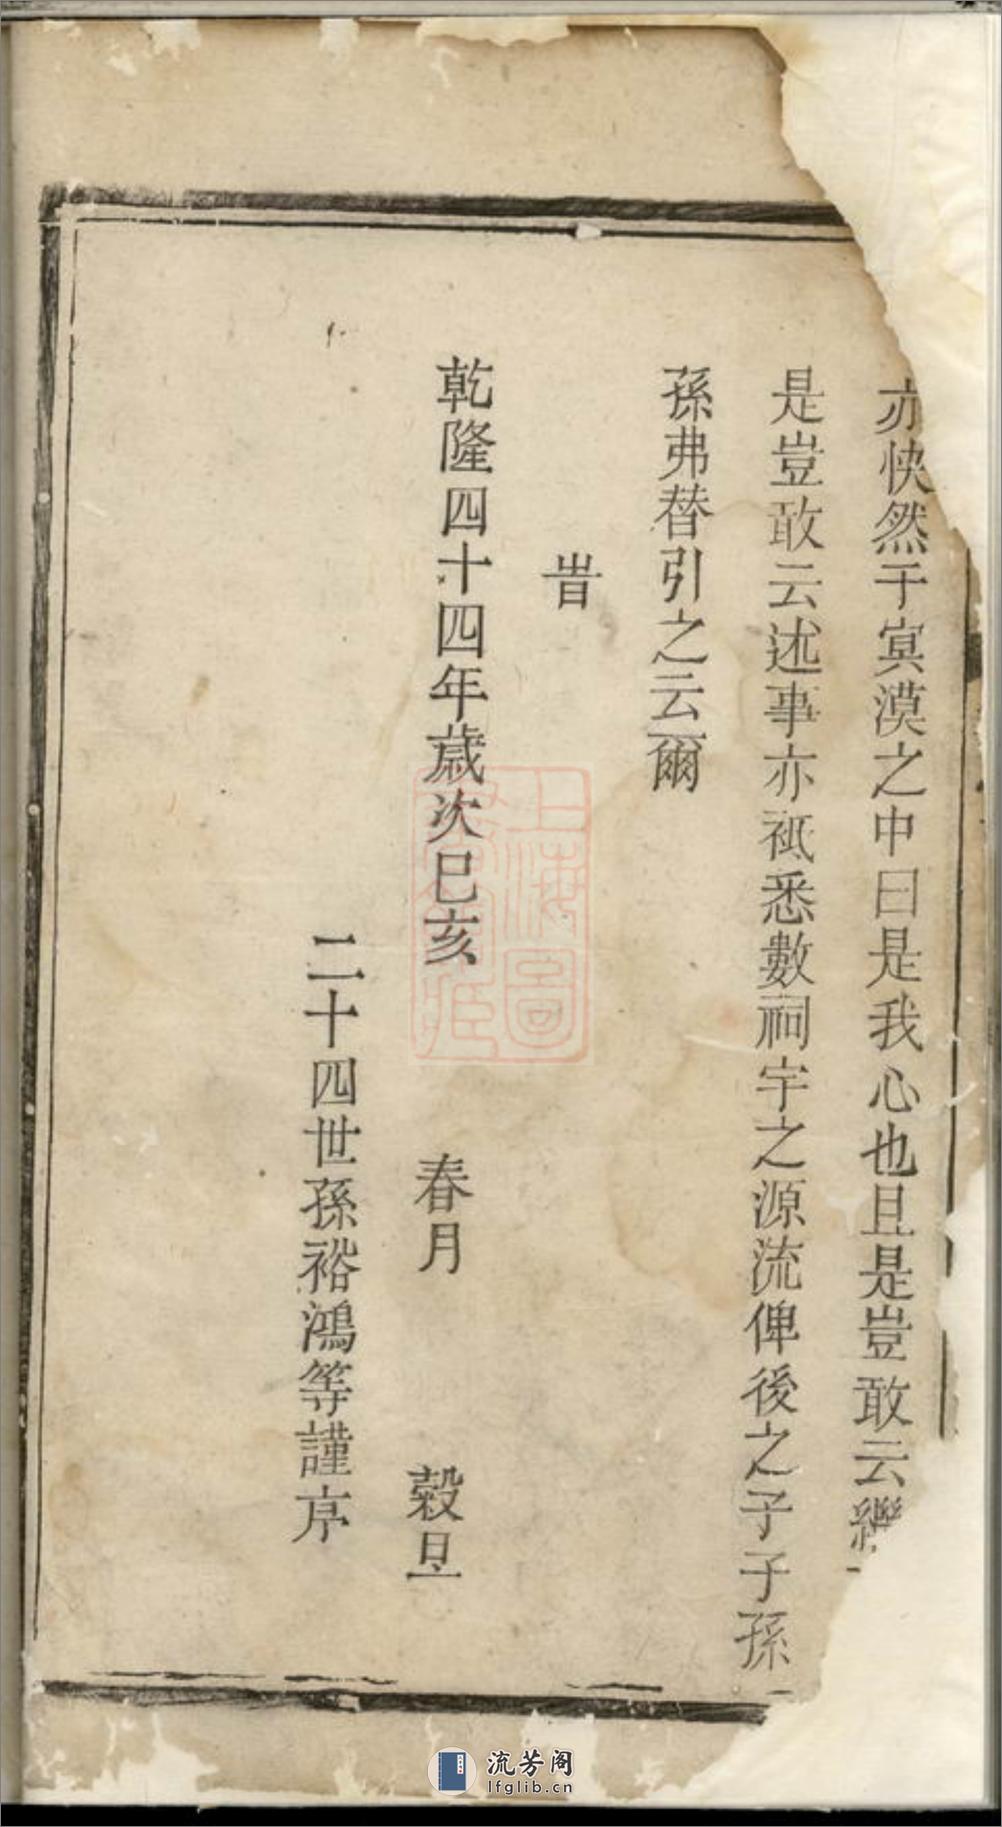 亦快然于寞漠之中曰是我心也且是豈敢云繼
是豈敢云述事亦祗悉數祠宇之源流俾後之子子孫
孫弗替引之云爾
旹
乾隆四十四年歲次巳亥 春月 榖旦
二十四世孫裕鴻等謹序
上海圖
流芳阁
lfglib.cn